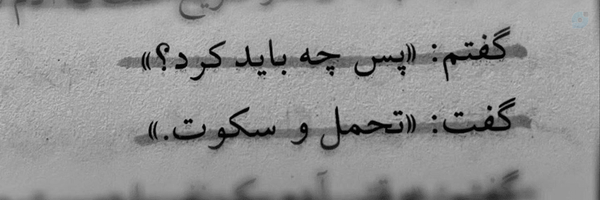 گفتم: «پس چه باید کرد؟»
گفت: «تحمل و سکوت.»